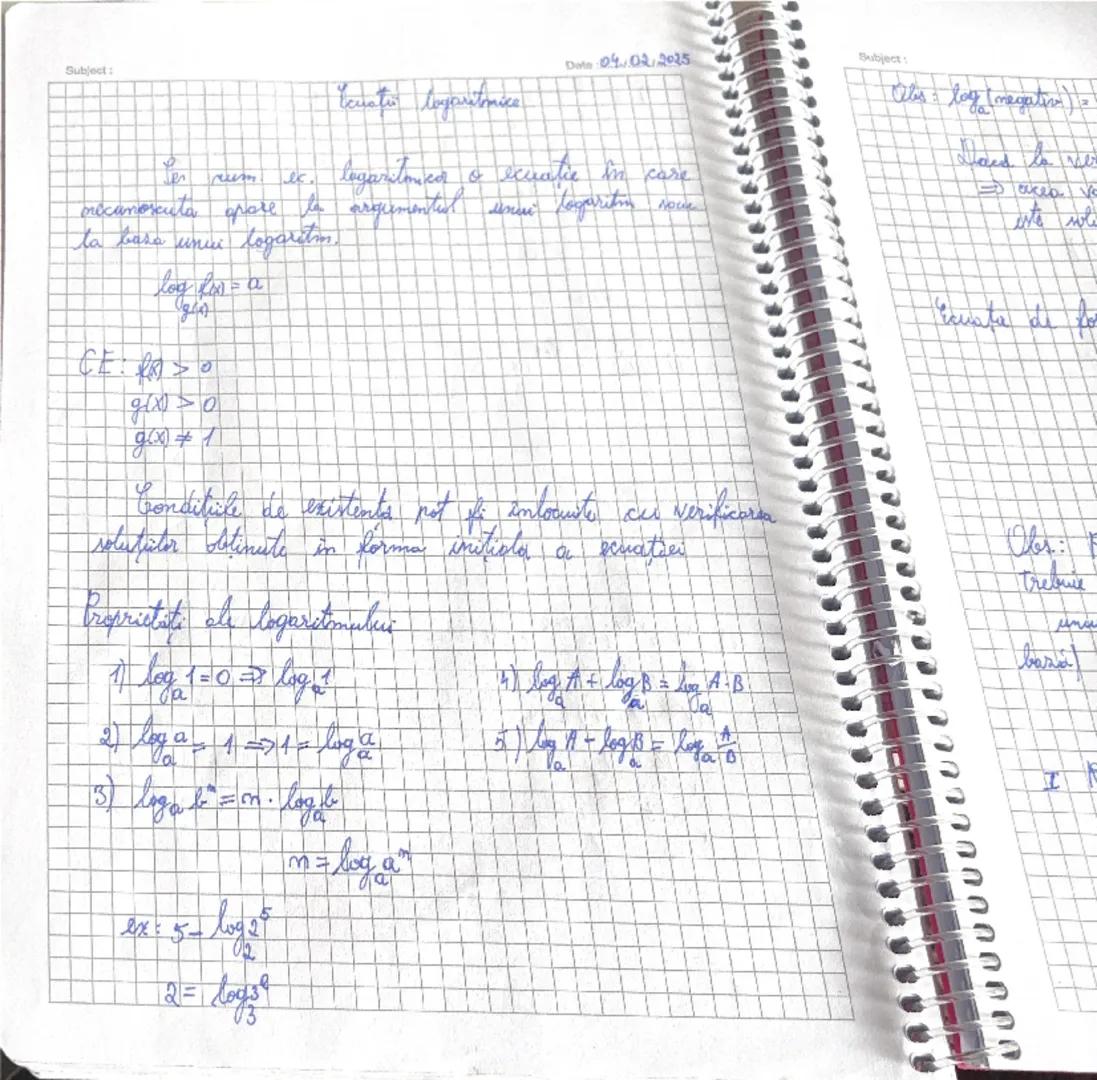 Subject:
Date: 04.02.2025
Ecuații logaritmice
Se num. ec. logaritmică o ecuație în care
necunoscuta apare la argumentul unui logaritm sau
la baza unui logaritm.
log_{g(x)} f(x) = a
CE: f(x) > 0
g(x) > 0
g(x) ≠ 1
Condițiile de existență pot fi înlocuite cu verificarea
soluțiilor obținute în forma inițială a ecuației
Proprietăți ale logaritmului
1) log_a 1 = 0 ⇒ log_a 1
2) log_a a = 1 ⇒ 1 = log_a a
3) log_a b^n = n · log_a b
n = log_a a^n
ex: 5 = log_2 2^5
2 = log_3 3
4) log_a A + log_a B = log_a A·B
5) log_a A - log_a B = log_a A/B
Subject:
Obs: log_a (negativ) =
Dacă la ver
⇒ acea va
este solu
Ecuația de fo
Obs.:
trebuie
unui
bază)
I